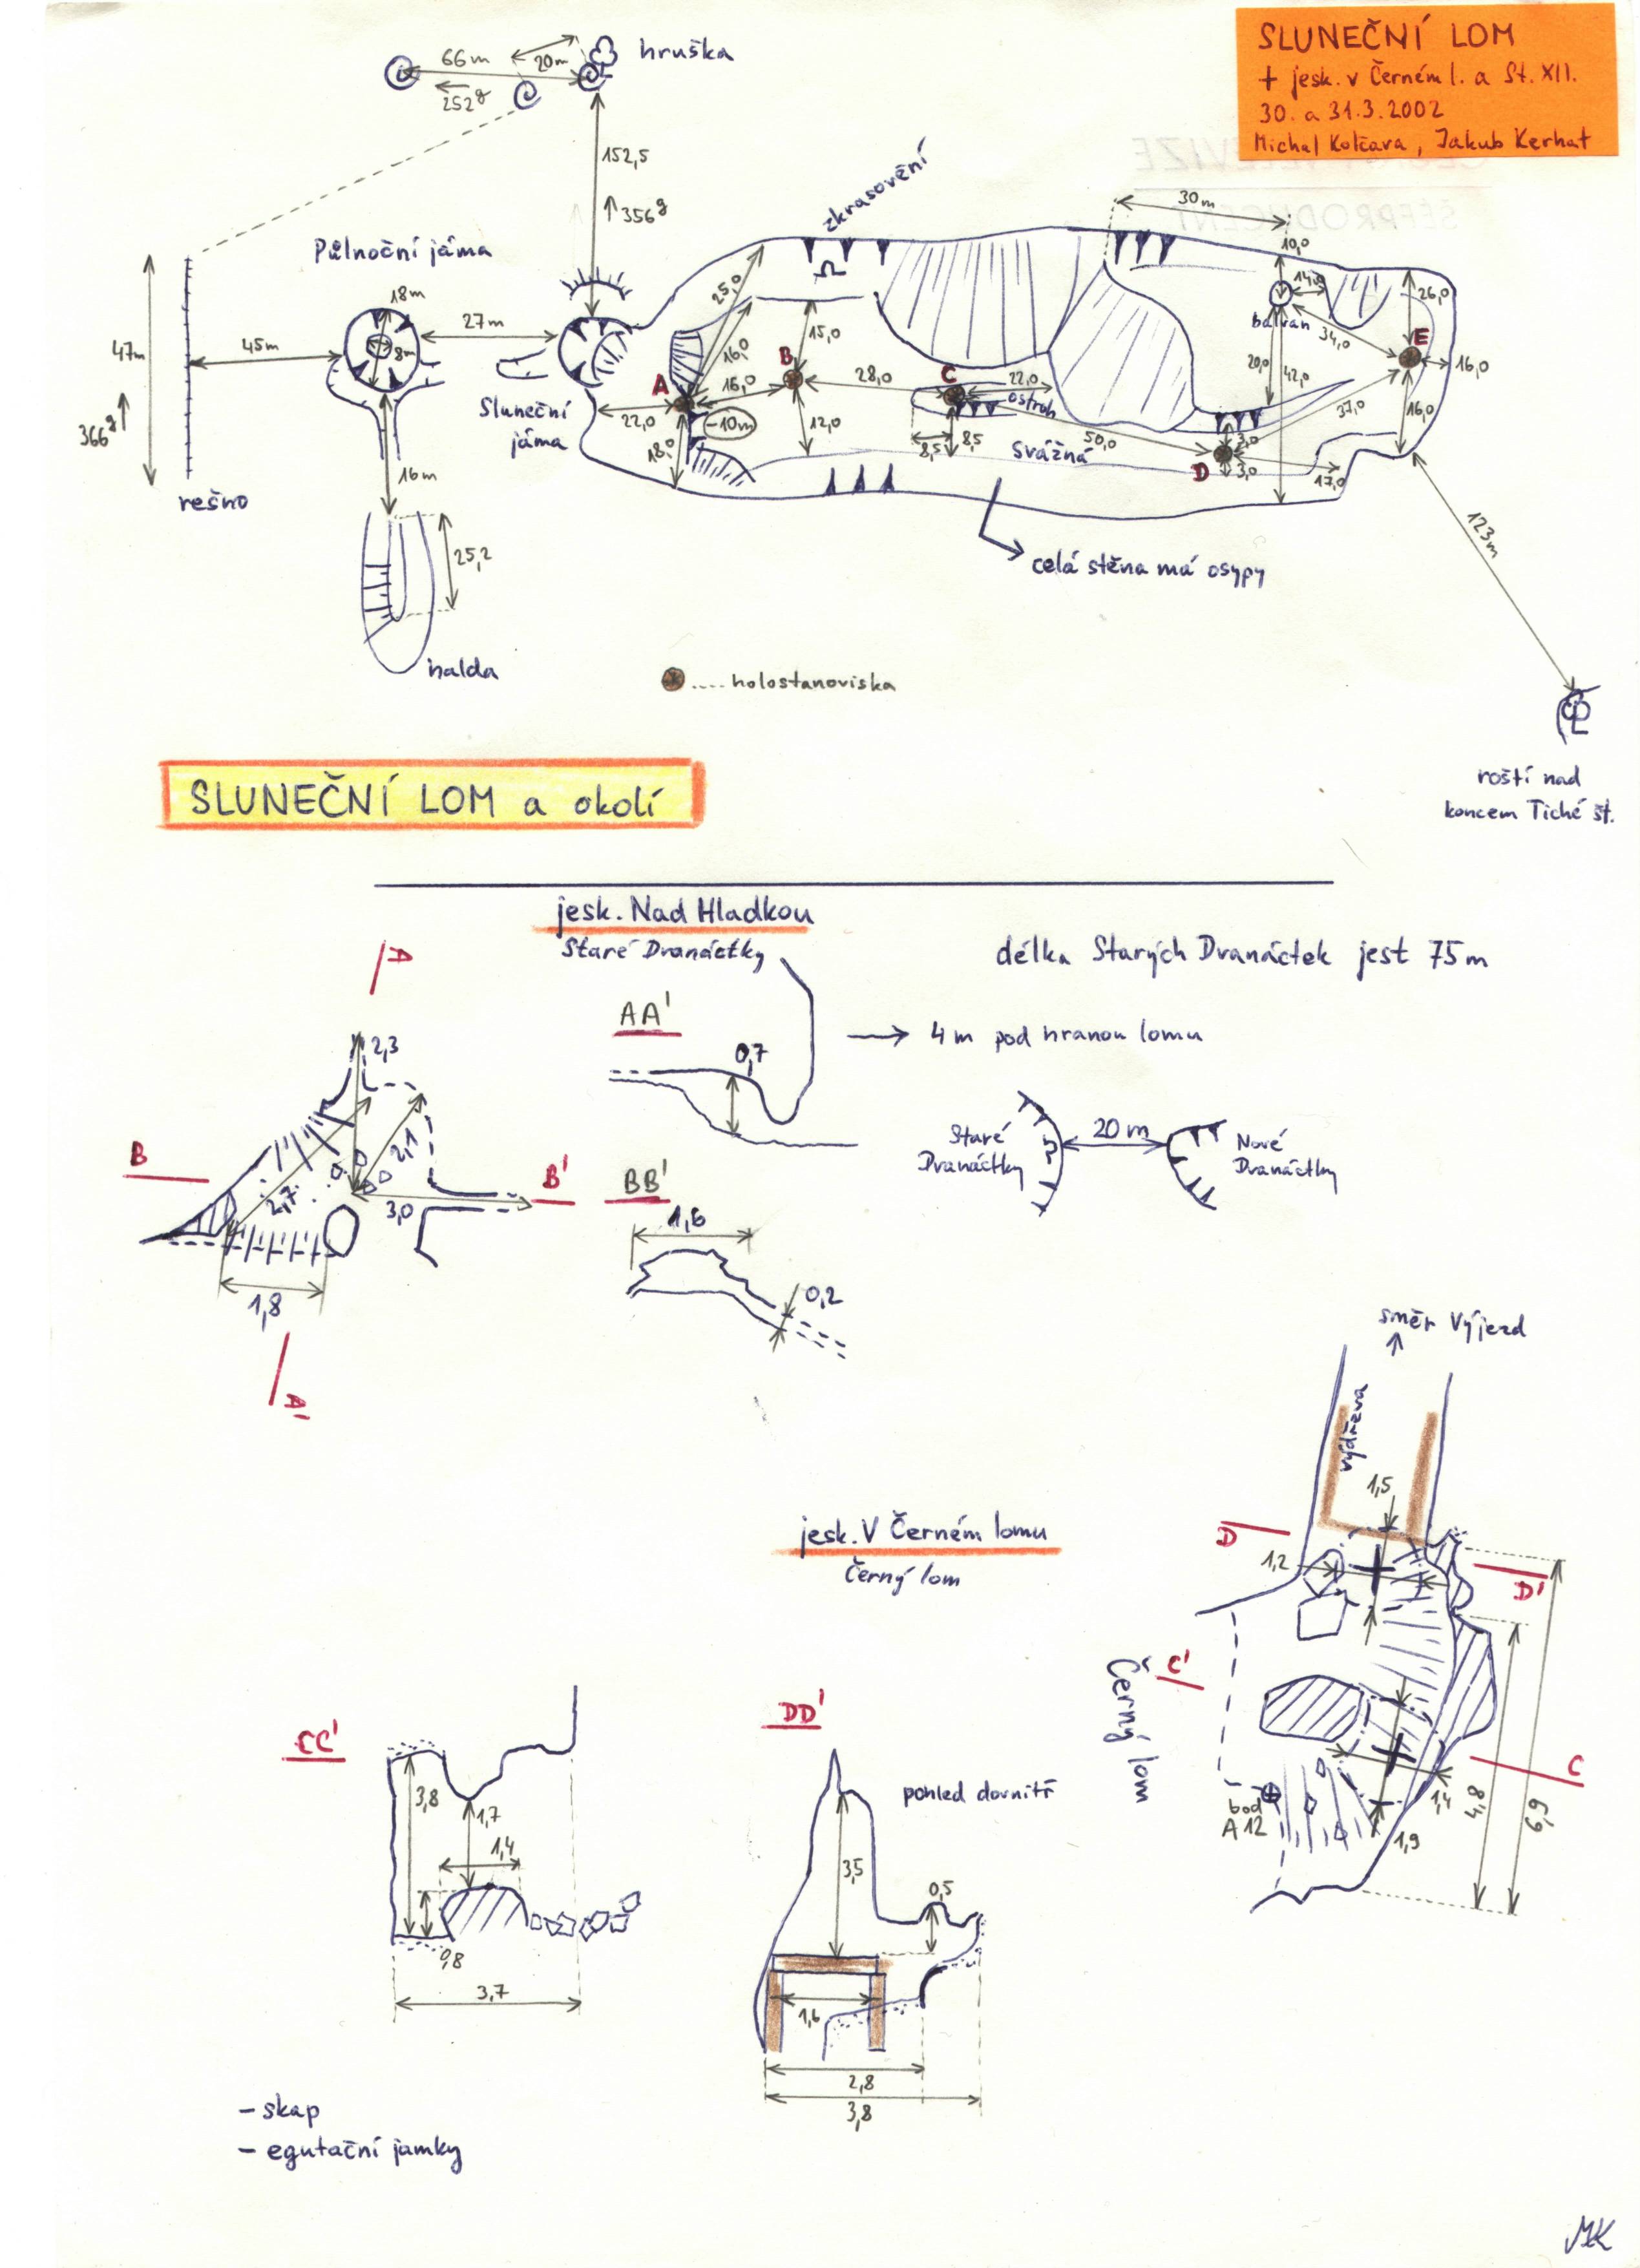 SLUNEČNÍ LOM
+ jesk. v Černém l. a St. XII.
30. a 31.3.2002
Michal Kolčava, Jakub Kerhat
hruška
66m
20m
252g
152,5
↑356g
zkrasovění
30m
Půlnoční jáma
18m
8m
27m
45m
47m
366g
řešno
16m
25,2
halda
Sluneční
jáma
25,0
16,0
15,0
A
B
C
D
E
16,0
28,0
22,0
22,0
-10m
18,0
12,0
ostroh
8,5
8,5
50,0
Svážná
10,0
14,0
balvan
34,0
20,0
42,0
26,0
16,0
37,0
16,0
3,0
3,0
17,0
123m
celá stěna má osypy
..... holostanoviska
roští nad
koncem Tiché št.
SLUNEČNÍ LOM a okolí
jesk. Nad Hladkou
Staré Dvanáctky
délka Starých Dvanáctek jest 75m
D
AA'
0,7
→ 4m pod hranou lomu
2,3
2,1
2,7
3,0
1,8
B
B'
D'
BB'
1,6
0,2
Staré
Dvanáctky
20m
Nové
Dvanáctky
směr Výjezd
výdřeva
1,5
D
1,2
D'
jesk. V Černém lomu
Černý lom
C'
Černý lom
C
bod
A12
1,4
1,9
4,8
6,9
CC'
3,8
1,7
1,4
0,8
3,7
DD'
pohled dovnitř
3,5
0,5
1,6
2,8
3,8
- skap
- egutační jamky
MK